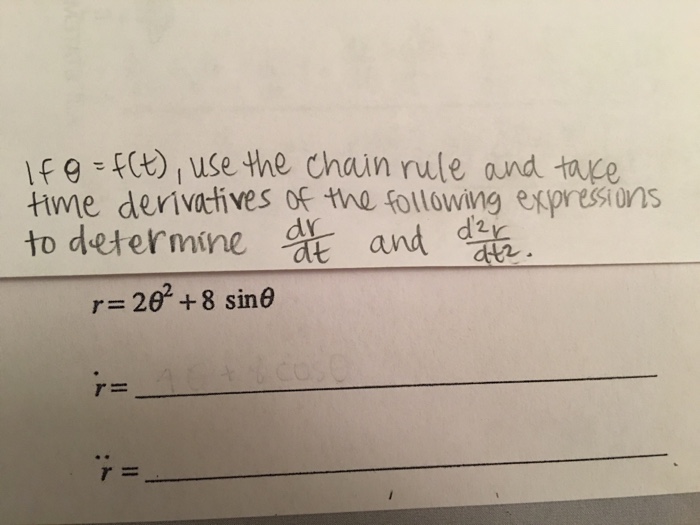 If θ = f(t), use the chain rule and take
time derivatives of the following expressions
to determine dr/dt and d²r/dt².
r = 2θ² + 8 sinθ
ṙ =
r̈ =